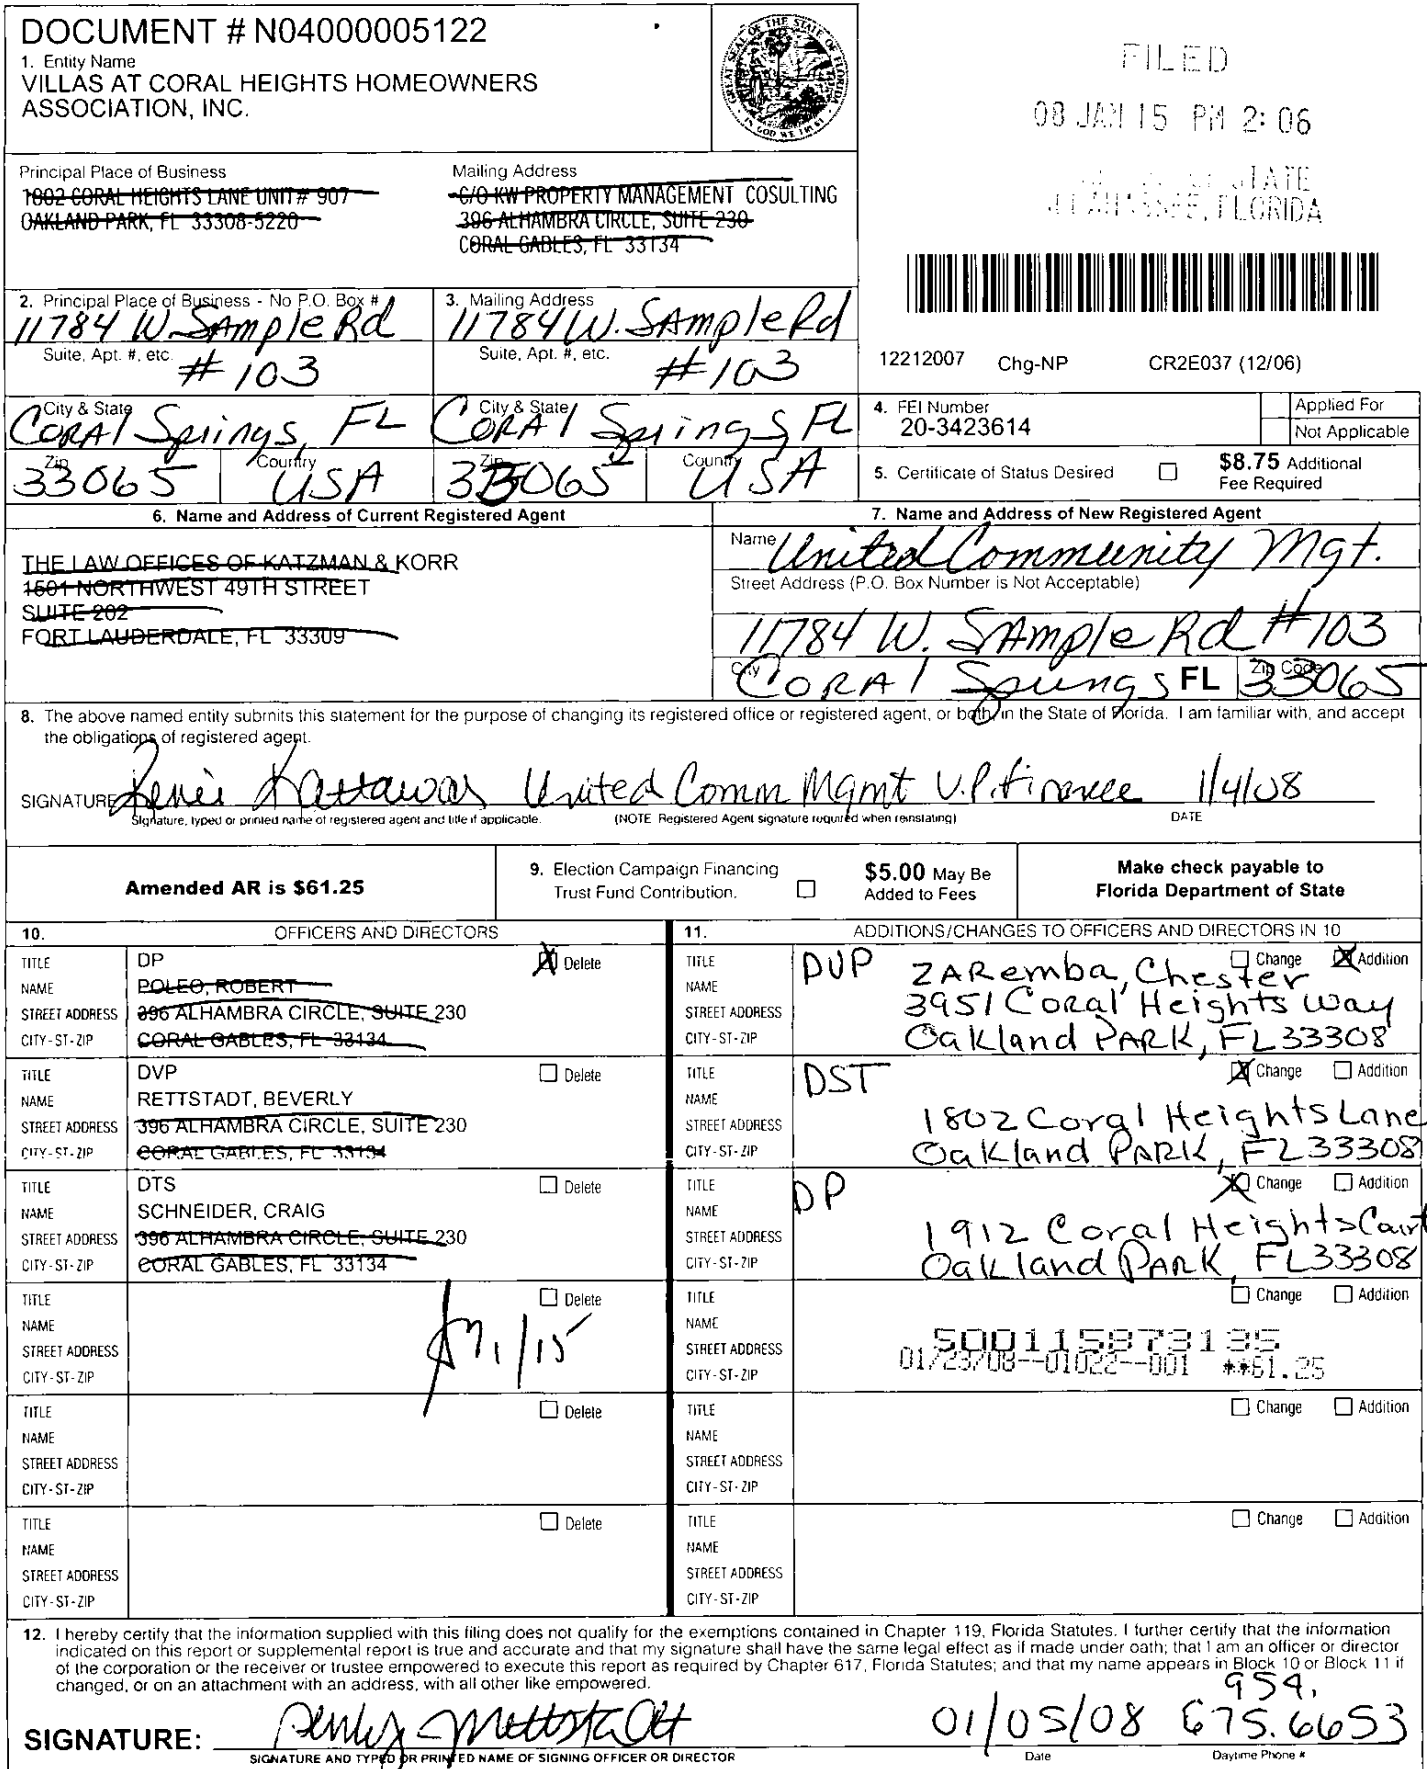 DOCUMENT # N04000005122
1. Entity Name
VILLAS AT CORAL HEIGHTS HOMEOWNERS
ASSOCIATION, INC.
GREAT SEAL OF THE STATE OF FLORIDA
IN GOD WE TRUST
FILED
08 JAN 15 PM 2: 06
STATE
FLORIDA
Principal Place of Business
1802 CORAL HEIGHTS LANE UNIT# 907
OAKLAND PARK, FL 33308-5220
Mailing Address
C/O KW PROPERTY MANAGEMENT COSULTING
396 ALHAMBRA CIRCLE, SUITE 230
CORAL GABLES, FL 33134
2. Principal Place of Business - No P.O. Box #
11784 W. SAmple Rd
Suite, Apt. #, etc.
#103
City & State
CORAl Springs, FL
Zip
33065
Country
USA
3. Mailing Address
11784 W. SAmple Rd
Suite, Apt. #, etc.
#103
City & State
CORAl Springs FL
Zip
33065
Country
USA
12212007 Chg-NP CR2E037 (12/06)
4. FEI Number
20-3423614
Applied For
Not Applicable
5. Certificate of Status Desired
$8.75 Additional
Fee Required
6. Name and Address of Current Registered Agent
THE LAW OFFICES OF KATZMAN & KORR
1501 NORTHWEST 49TH STREET
SUITE 202
FORT LAUDERDALE, FL 33309
7. Name and Address of New Registered Agent
Name
United Community Mgt.
Street Address (P.O. Box Number is Not Acceptable)
11784 W. SAmple Rd #103
City
CORAl Springs FL
Zip Code
33065
8. The above named entity submits this statement for the purpose of changing its registered office or registered agent, or both, in the State of Florida. I am familiar with, and accept
the obligations of registered agent.
SIGNATURE Renee Kattawar United Comm Mgmt V.P. Finance 1/4/08
Signature, typed or printed name of registered agent and title if applicable. (NOTE Registered Agent signature required when reinstating) DATE
Amended AR is $61.25
9. Election Campaign Financing
Trust Fund Contribution.
$5.00 May Be
Added to Fees
Make check payable to
Florida Department of State
10. OFFICERS AND DIRECTORS
11. ADDITIONS/CHANGES TO OFFICERS AND DIRECTORS IN 10
TITLE DP X Delete
NAME POLEO, ROBERT
STREET ADDRESS 396 ALHAMBRA CIRCLE, SUITE 230
CITY-ST-ZIP CORAL GABLES, FL 33134
TITLE DVP Change X Addition
NAME ZARemba, Chester
STREET ADDRESS 3951 Coral Heights Way
CITY-ST-ZIP Oakland PARK, FL 33308
TITLE DVP Delete
NAME RETTSTADT, BEVERLY
STREET ADDRESS 396 ALHAMBRA CIRCLE, SUITE 230
CITY-ST-ZIP CORAL GABLES, FL 33134
TITLE DST X Change Addition
NAME
STREET ADDRESS 1802 Coral Heights Lane
CITY-ST-ZIP Oakland PARK, FL 33308
TITLE DTS Delete
NAME SCHNEIDER, CRAIG
STREET ADDRESS 396 ALHAMBRA CIRCLE, SUITE 230
CITY-ST-ZIP CORAL GABLES, FL 33134
TITLE DP X Change Addition
NAME
STREET ADDRESS 1912 Coral Heights Court
CITY-ST-ZIP Oakland PARK, FL 33308
TITLE Delete
NAME
STREET ADDRESS 1/15
CITY-ST-ZIP
TITLE Change Addition
NAME
STREET ADDRESS 500115873135
01/23/08--01022--001 **61.25
CITY-ST-ZIP
TITLE Delete
NAME
STREET ADDRESS
CITY-ST-ZIP
TITLE Change Addition
NAME
STREET ADDRESS
CITY-ST-ZIP
TITLE Delete
NAME
STREET ADDRESS
CITY-ST-ZIP
TITLE Change Addition
NAME
STREET ADDRESS
CITY-ST-ZIP
12. I hereby certify that the information supplied with this filing does not qualify for the exemptions contained in Chapter 119, Florida Statutes. I further certify that the information
indicated on this report or supplemental report is true and accurate and that my signature shall have the same legal effect as if made under oath; that I am an officer or director
of the corporation or the receiver or trustee empowered to execute this report as required by Chapter 617, Florida Statutes; and that my name appears in Block 10 or Block 11 if
changed, or on an attachment with an address, with all other like empowered.
954.
SIGNATURE: 01/05/08 675.6653
SIGNATURE AND TYPED OR PRINTED NAME OF SIGNING OFFICER OR DIRECTOR Date Daytime Phone #